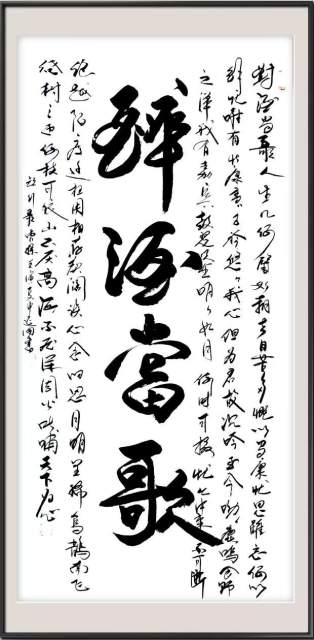 對酒當歌人生几何譬如朝露去日苦多慨以當慷忧思難忘何以
解忧唯有杜康青青子衿悠悠我心但为君故沉吟至今呦呦鹿鳴食野
之萍我有嘉宾鼓瑟吹笙明明如月何时可掇忧从中来不可断
醉酒當歌
绝越陌度阡枉用相存契阔谈心念旧恩月明星稀烏鹊南飞
绕树三匝何枝可依山不厌高海不厌深周公吐哺天下归心